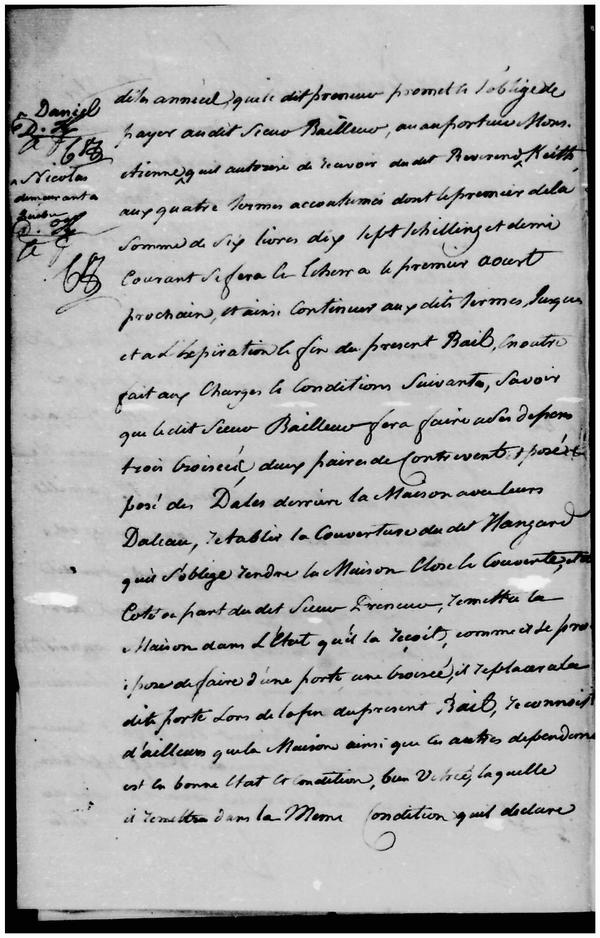 Daniel
D. K
Nicolas
demeurant a
Quebec
D. K
dites années, que le dit preneur promet & s'oblige de
payer audit Sieur Bailleur, ou au porteur Mons.
Etienne qu'il autorise de recevoir du dit Reverend Keith,
aux quatre termes accoutumés dont le premier de la
Somme de Six livres dix sept schilling et demi
Courant se fera & Echerra le premier aoust
prochain, et ainsi Continuer aux dits termes, Jusques
et a l'Expiration & fin du present Bail, En outre
fait aux Charges & Conditions Suivants, Savoir
que le dit Sieur Bailleur fera faire a ses depens
trois Croiseés, deux paires de Contrevent, & posé &
posé des Dales derriere la Maison avec leurs
Daleau, retablir la Couverture du dit Hangard
qu'il s'oblige rendre la Maison Close & Couverte, et de
Coté & part du dit Sieur Preneur, remettre la
Maison dans L'Etat qu'il la reçoit, comme il se pro
pose de faire d'une porte, une Croiseé, il replacera la
dite porte Lors de la fin du present Bail, reconnoit
d'ailleurs que la Maison ainsi que les autres dependence
est en bonne Etat & Condition, bien Vitreé, laquelle
il remettra dans la Meme Condition qu'il declare